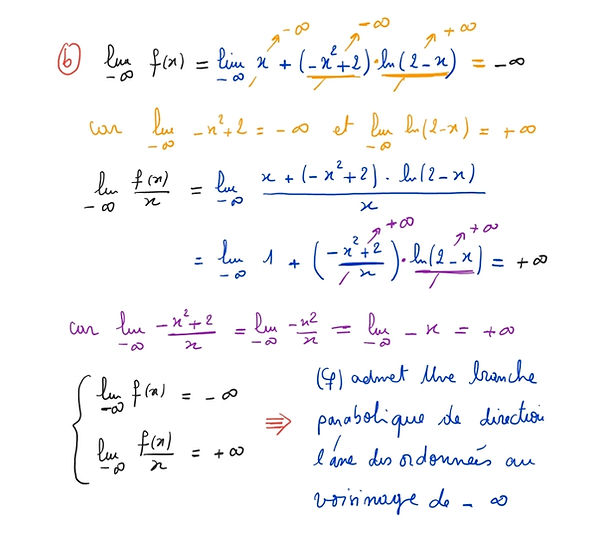 b) lim_{-∞} f(x) = lim_{-∞} x + (-x²+2)·ln(2-x) = -∞
→ -∞ → -∞ → +∞
car lim_{-∞} -x²+2 = -∞ et lim_{-∞} ln(2-x) = +∞
lim_{-∞} f(x)/x = lim_{-∞} (x + (-x²+2)·ln(2-x))/x
= lim_{-∞} 1 + ((-x²+2)/x)·ln(2-x) = +∞
→ +∞ → +∞
car lim_{-∞} (-x²+2)/x = lim_{-∞} -x²/x = lim_{-∞} -x = +∞
{ lim_{-∞} f(x) = -∞
lim_{-∞} f(x)/x = +∞
⇒
(φ) admet Une branche
parabolique de direction
l'axe des ordonneés au
voisinage de -∞